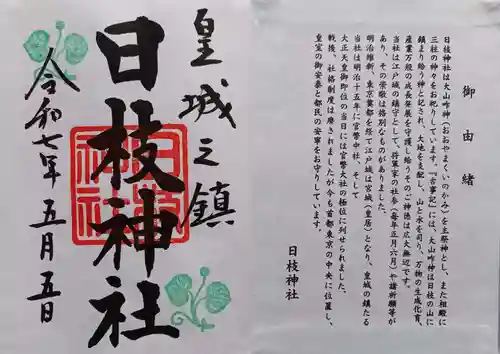 皇城之鎮
日枝神社
令和七年 五月 五日
日枝神社
御由緒
日枝神社は大山咋神（おおやまくいのかみ）を主祭神とし、また相殿に
三柱の神々をお祀りしています。『古事記』には、大山咋神は日枝の山に
鎮まり給う神と記され、大地を支配し、山と水を司り、万物の生成化育、
産業万般の成長発展を守護し給うそのご神徳は広大無辺です。
当社は江戸城の鎮守として、将軍家の社参（毎年正月六月）や諸祈願等が
あり、その崇敬は格別なものがありました。
明治維新、東京奠都を経て江戸城は宮城（皇居）となり、皇城の鎮たる
当社は明治十五年に官幣中社、そして
大正天皇御即位の当日には官幣大社の極位に列せられました。
戦後、社格制度は廃されましたが今も首都東京の中央に位置し、
皇室の御安泰と都民の安寧をお守りしています。
日枝神社